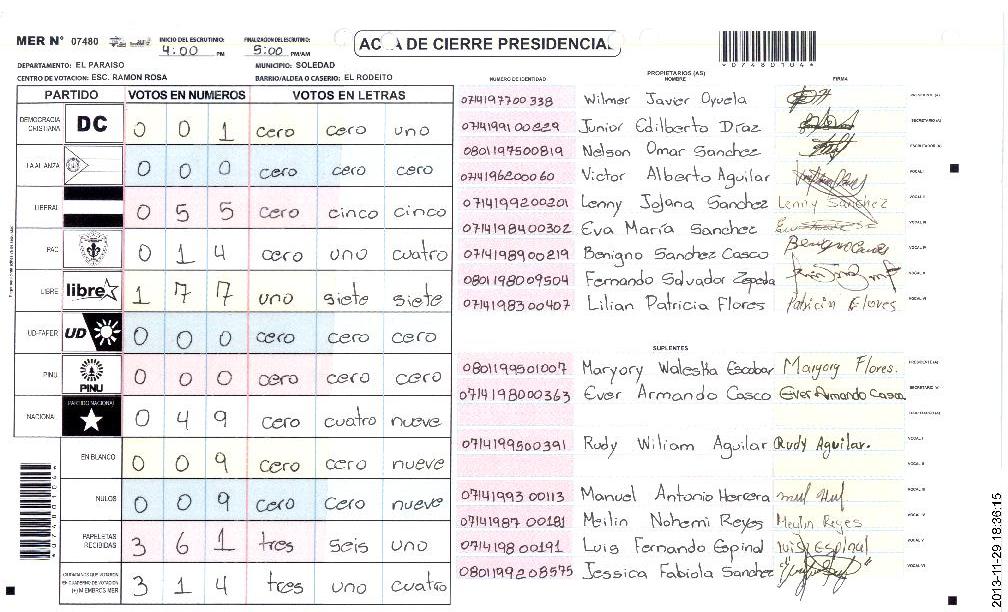 MER N° 07480
INICIO DEL ESCRUTINIO: 4:00 PM
FINALIZACION DEL ESCRUTINIO: 5:00 PM/AM
ACTA DE CIERRE PRESIDENCIAL
07480104
DEPARTAMENTO: EL PARAISO
MUNICIPIO: SOLEDAD
CENTRO DE VOTACION: ESC. RAMON ROSA
BARRIO/ALDEA O CASERIO: EL RODEITO
PARTIDO VOTOS EN NUMEROS VOTOS EN LETRAS
DEMOCRACIA CRISTIANA DC 0 0 1 cero cero uno
LA ALIANZA 0 0 0 cero cero cero
LIBERAL 0 5 5 cero cinco cinco
PAC 0 1 4 cero uno cuatro
LIBRE libre 1 7 7 uno siete siete
UD-FAPER UD 0 0 0 cero cero cero
PINU PINU 0 0 0 cero cero cero
NACIONAL PARTIDO NACIONAL 0 4 9 cero cuatro nueve
EN BLANCO 0 0 9 cero cero nueve
NULOS 0 0 9 cero cero nueve
PAPELETAS RECIBIDAS 3 6 1 tres seis uno
CIUDADANOS QUE VOTARON EN CUADERNO DE VOTACION (+) MIEMBROS MER 3 1 4 tres uno cuatro
07480104
PROPIETARIOS (AS)
NUMERO DE IDENTIDAD NOMBRE FIRMA
0714197700338 Wilmer Javier Oyuela PRESIDENTE (A)
0714199100229 Junior Edilberto Díaz SECRETARIO (A)
0801197500819 Nelson Omar Sanchez ESCRUTADOR (A)
0714196200060 Victor Alberto Aguilar VOCAL I
0714199200201 Lenny Jojana Sanchez Lenny Sanchez VOCAL II
0714198400302 Eva María Sanchez VOCAL III
0714198900219 Benigno Sanchez Casco VOCAL IV
0801198009504 Fernando Salvador Zepeda VOCAL V
0714198300407 Lilian Patricia Flores Patricia Flores VOCAL VI
SUPLENTES
0801199501007 Maryory Waleska Escobar Maryory Flores. PRESIDENTE (A)
0714198000363 Ever Armando Casco Ever Armando Casco SECRETARIO (A)
ESCRUTADOR (A)
0714199500391 Rudy Wiliam Aguilar Rudy Aguilar. VOCAL I
VOCAL II
0714199300113 Manuel Antonio Herrera VOCAL III
0714198700181 Meilin Nohemi Reyes Meilin Reyes VOCAL IV
071419800191 Luis Fernando Espinal Luis Espinal VOCAL V
0801199208575 Jessica Fabiola Sanchez VOCAL VI
2013-11-29 18:36:15